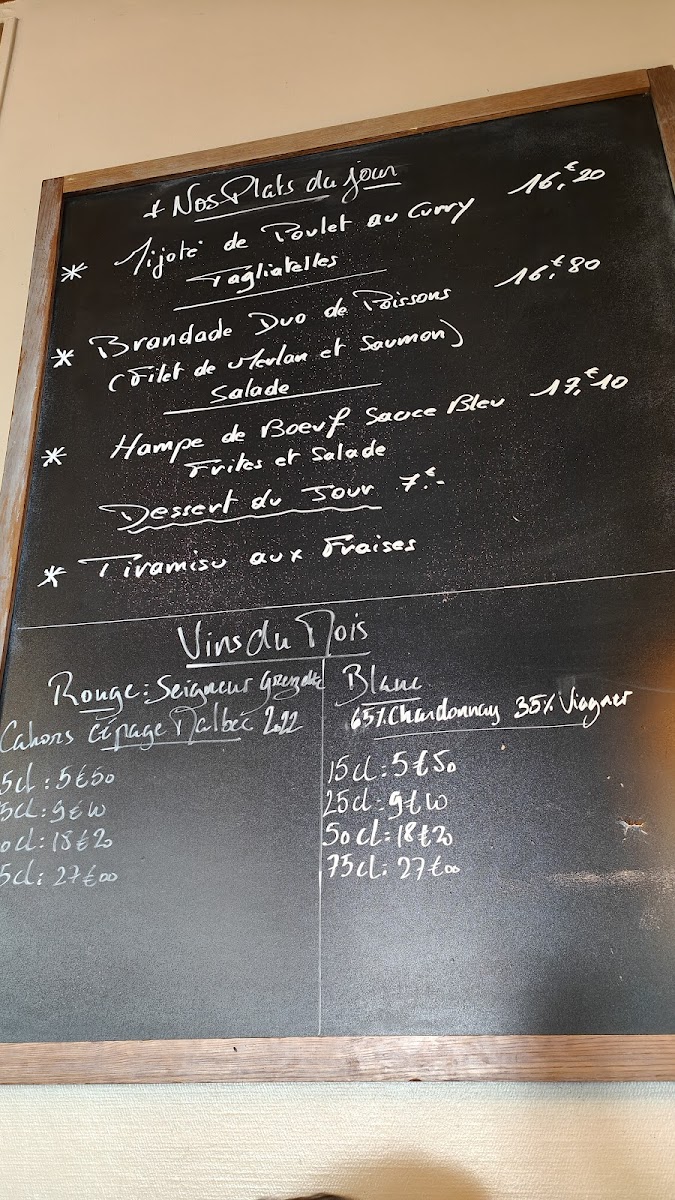 + Nos Plats du jour
* Mijoté de Poulet au Curry 16,€20
Tagliatelles
* Brandade Duo de Poissons 16,€80
(Filet de Merlan et Saumon)
Salade
* Hampe de Boeuf Sauce Bleu 17,€10
Frites et Salade
Dessert du Jour 7.€-
* Tiramisu aux Fraises
Vins du Mois
Rouge: Seigneur
Cahors cépage Malbec 2022
5cl: 5€50
5cl: 9€10
0cl: 18€20
5cl: 27€00
Blanc
65% Chardonnay 35% Viogner
15cl: 5€50
25cl: 9€10
50cl: 18€20
75cl: 27€00